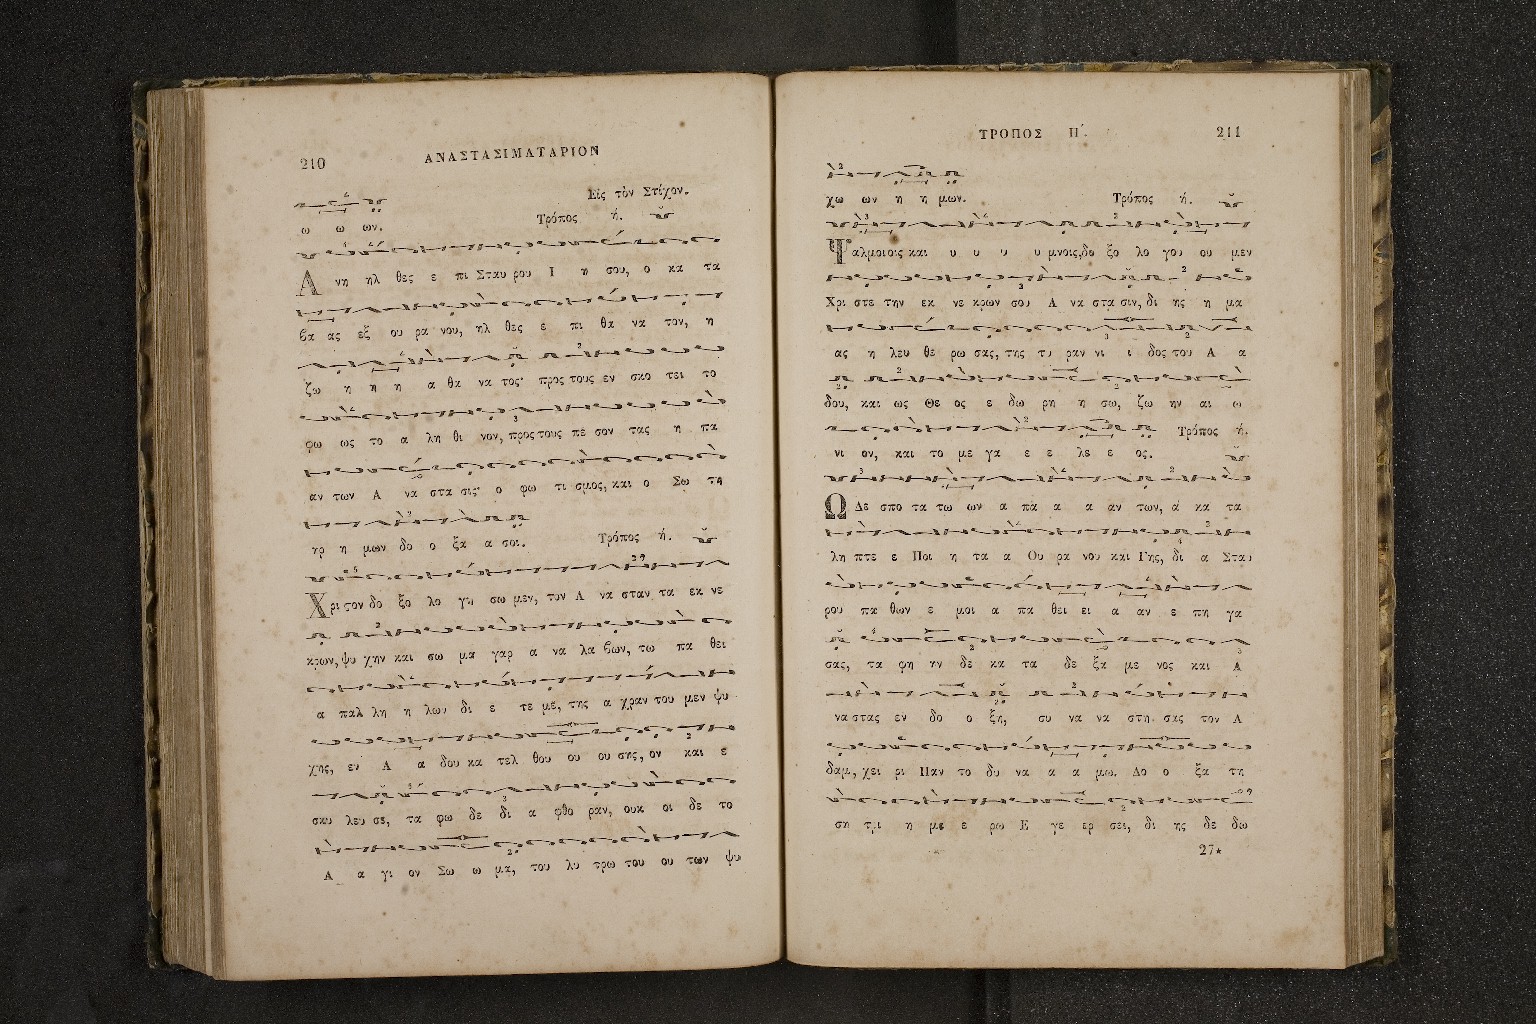 210
ΑΝΑΣΤΑΣΙΜΑΤΑΡΙΟΝ
Εἰς τὸν Στίχον.
ω ω ων.
Τρόπος ή.
Α νη ηλ θες ε πι Σταυ ρου Ι η σου, ο κα τα
βα ας εξ ου ρα νου, ηλ θες ε πι θα να τον, η
ζω η η η α θα να τος· προς τους εν σκο τει το
φω ως το α λη θι νον, προς τους πε σον τας η πα
αν των Α να στα σις· ο φω τι σμος, και ο Σω τη
ηρ η μων δο ο ξα α σοι.
Τρόπος ή.
Χρι στον δο ξο λο γη σω μεν, τον Α να σταν τα εκ νε
κρων, ψυ χην και σω μα γαρ α να λα βων, τω πα θει
α παλ λη η λων δι ε τε με, της α χραν του μεν ψυ
χης, εν Α α δου κα τελ θου ου ου σης, ον και ε
σκυ λευ σε, τα φω δε δι α φθο ραν, ουκ οι δε το
Α α γι ον Σω ω μα, του λυ τρω του ου των ψυ
ΤΡΟΠΟΣ Π΄.
211
χω ων η η μων.
Τρόπος ή.
Ψαλμοιοις και υ υ υ υ μνοις, δο ξο λο γου ου μεν
Χρι στε την εκ νε κρων σου Α να στα σιν, δι ης η μα
ας η λευ θε ρω σας, της τυ ραν νι ι δος του Α α
δου, και ως Θε ος ε δω ρη η σω, ζω ην αι ω
νι ον, και το με γα ε ε λε ε ος.
Τρόπος ή.
Ω Δε σπο τα τω ων α πα α α αν των, ά κα τα
λη πτε ε Ποι η τα α Ου ρα νου και Γης, δι α Σταυ
ρου πα θων ε μοι α πα θει ει α αν ε πη γα
σας, τα φη ην δε κα τα δε ξα με νος και Α
να στας εν δο ο ξη, συ να να στη σας τον Α
δαμ, χει ρι Παν το δυ να α α μω. Δο ο ξα τη
ση τρι η με ε ρω Ε γε ερ σει, δι ης δε δω
27*